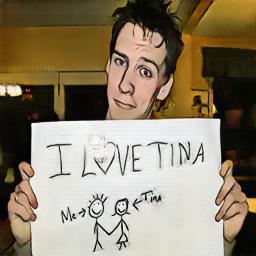 I LOVE TINA
Me→ ←Tina